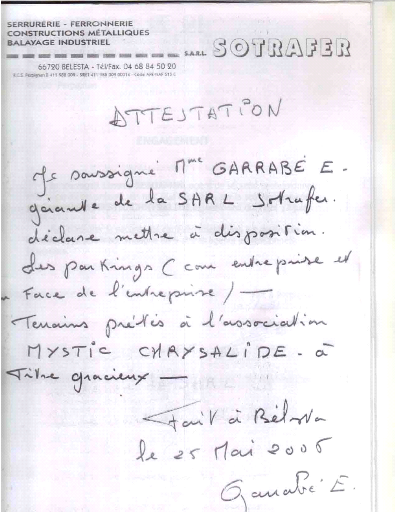 SERRURERIE - FERRONNERIE
CONSTRUCTIONS MÉTALLIQUES
BALAYAGE INDUSTRIEL
S.A.R.L. SOTRAFER
66720 BELESTA - Tél/Fax. 04 68 84 50 20
ATTESTATION
Je soussigné Mme GARRABÉ E.
gérante de la SARL Sotrafer.
déclare mettre à disposition.
des parkings (cour entreprise et
Face de l'entreprise) —
Terrains prêtés à l'association
MYSTIC CHRYSALIDE - à
Titre gracieux —
Fait à Bélesta
le 25 Mai 2005
Garrabé E.